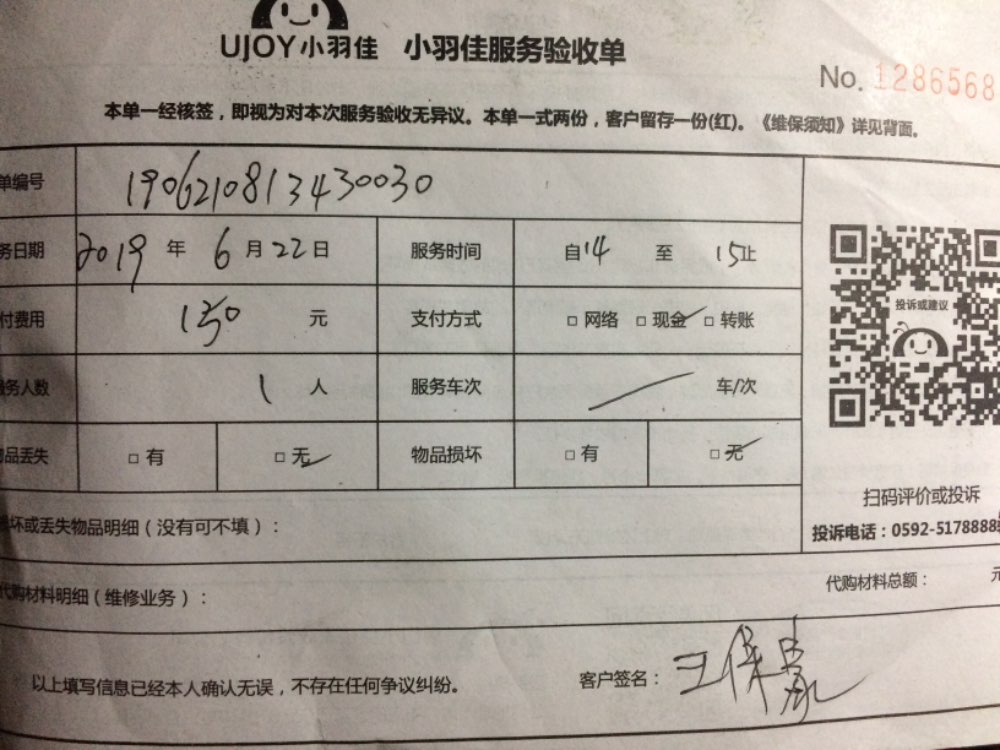 UJOY小羽佳 小羽佳服务验收单
No. 1286568
本单一经核签，即视为对本次服务验收无异议。本单一式两份，客户留存一份(红)。《维保须知》详见背面。
单编号 1906210813430030
务日期 2019 年 6 月 22 日 服务时间 自14 至 15止
付费用 150 元 支付方式 □ 网络 □ 现金 □ 转账
务人数 1 人 服务车次 车/次
品丢失 □ 有 □ 无 物品损坏 □ 有 □ 无
投诉或建议
扫码评价或投诉
投诉电话：0592-5178888
坏或丢失物品明细（没有可不填）：
代购材料明细（维修业务）： 代购材料总额： 元
以上填写信息已经本人确认无误，不存在任何争议纠纷。 客户签名：王保